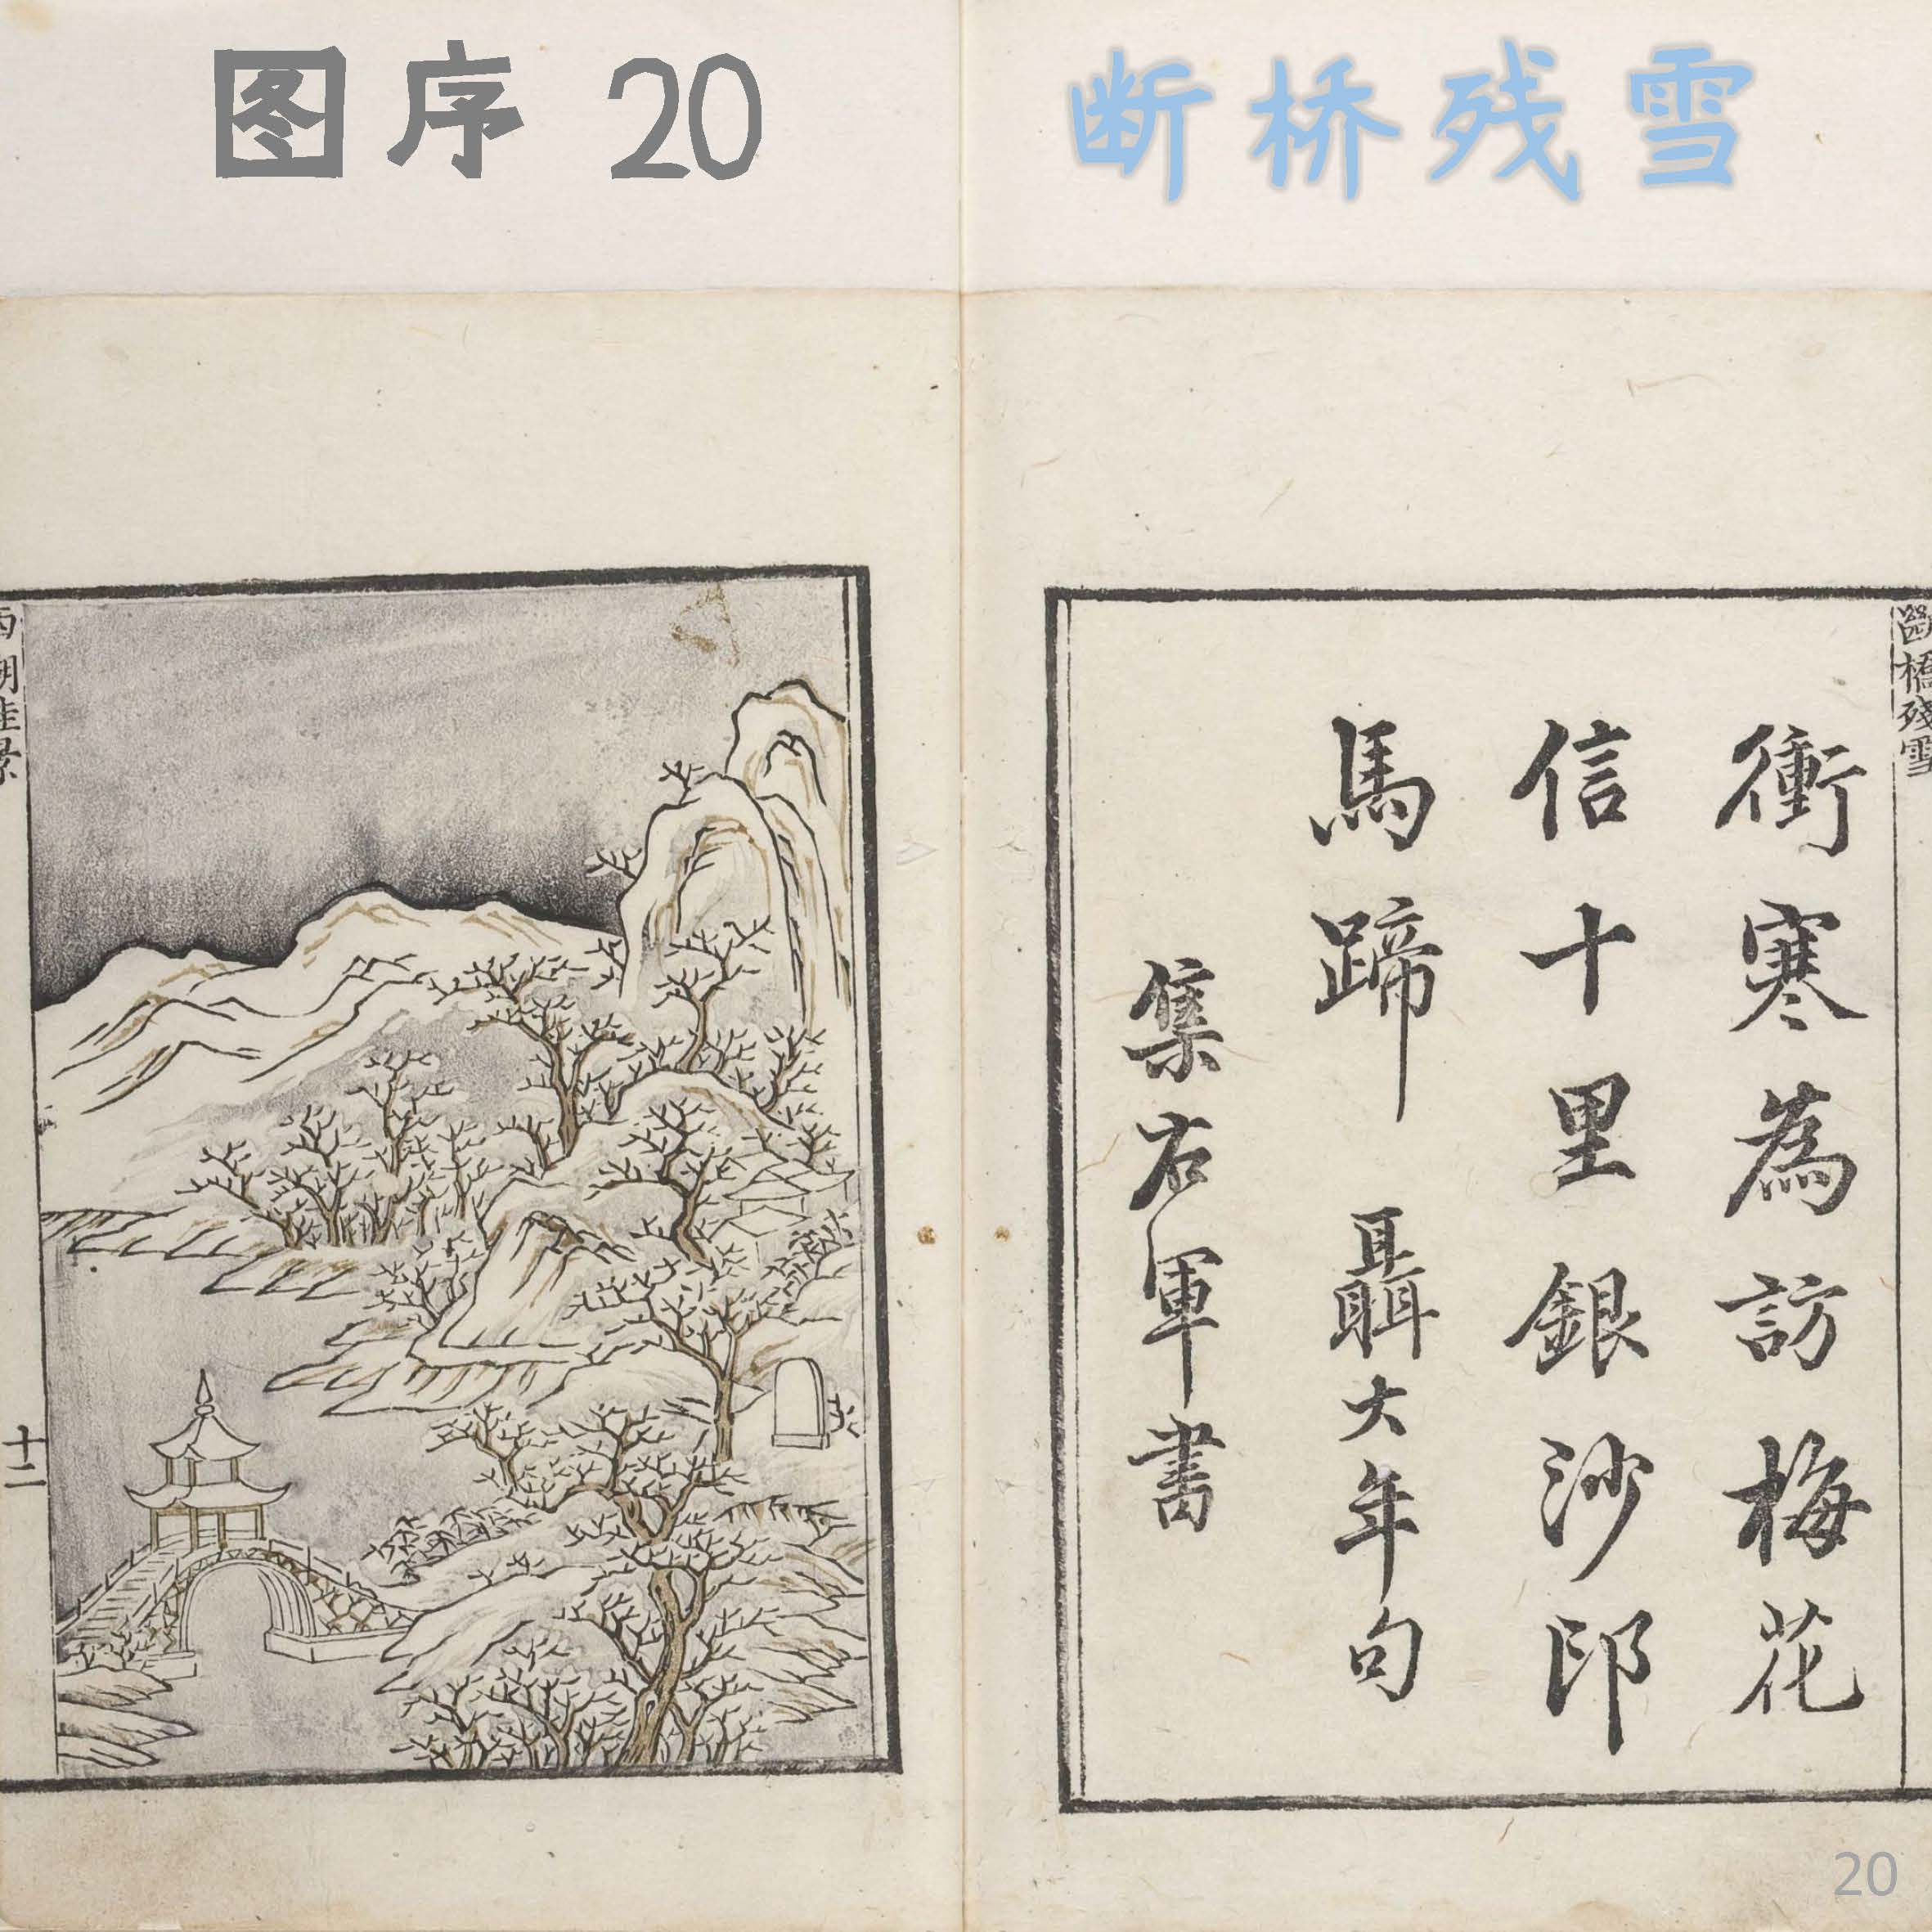 图序 20
断桥残雪
斷橋殘雪
衝寒為訪梅花
信十里銀沙印
馬蹄 聶大年句
集右軍書
西湖佳景
十二
20